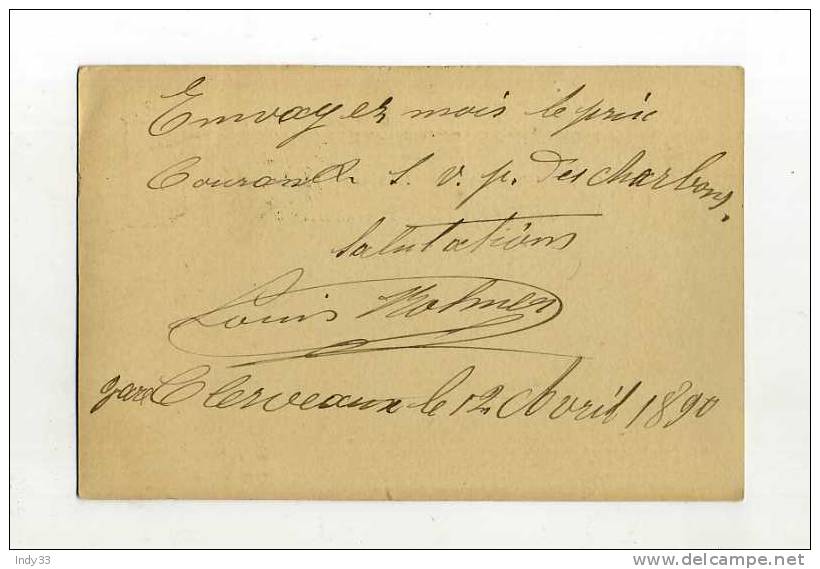 Envoyez mois le prix
Courant S. v. p. des charbons.
Salutations
Louis
gare Clervaux le 12 Avril 1890
Indy33
www.delcampe.net